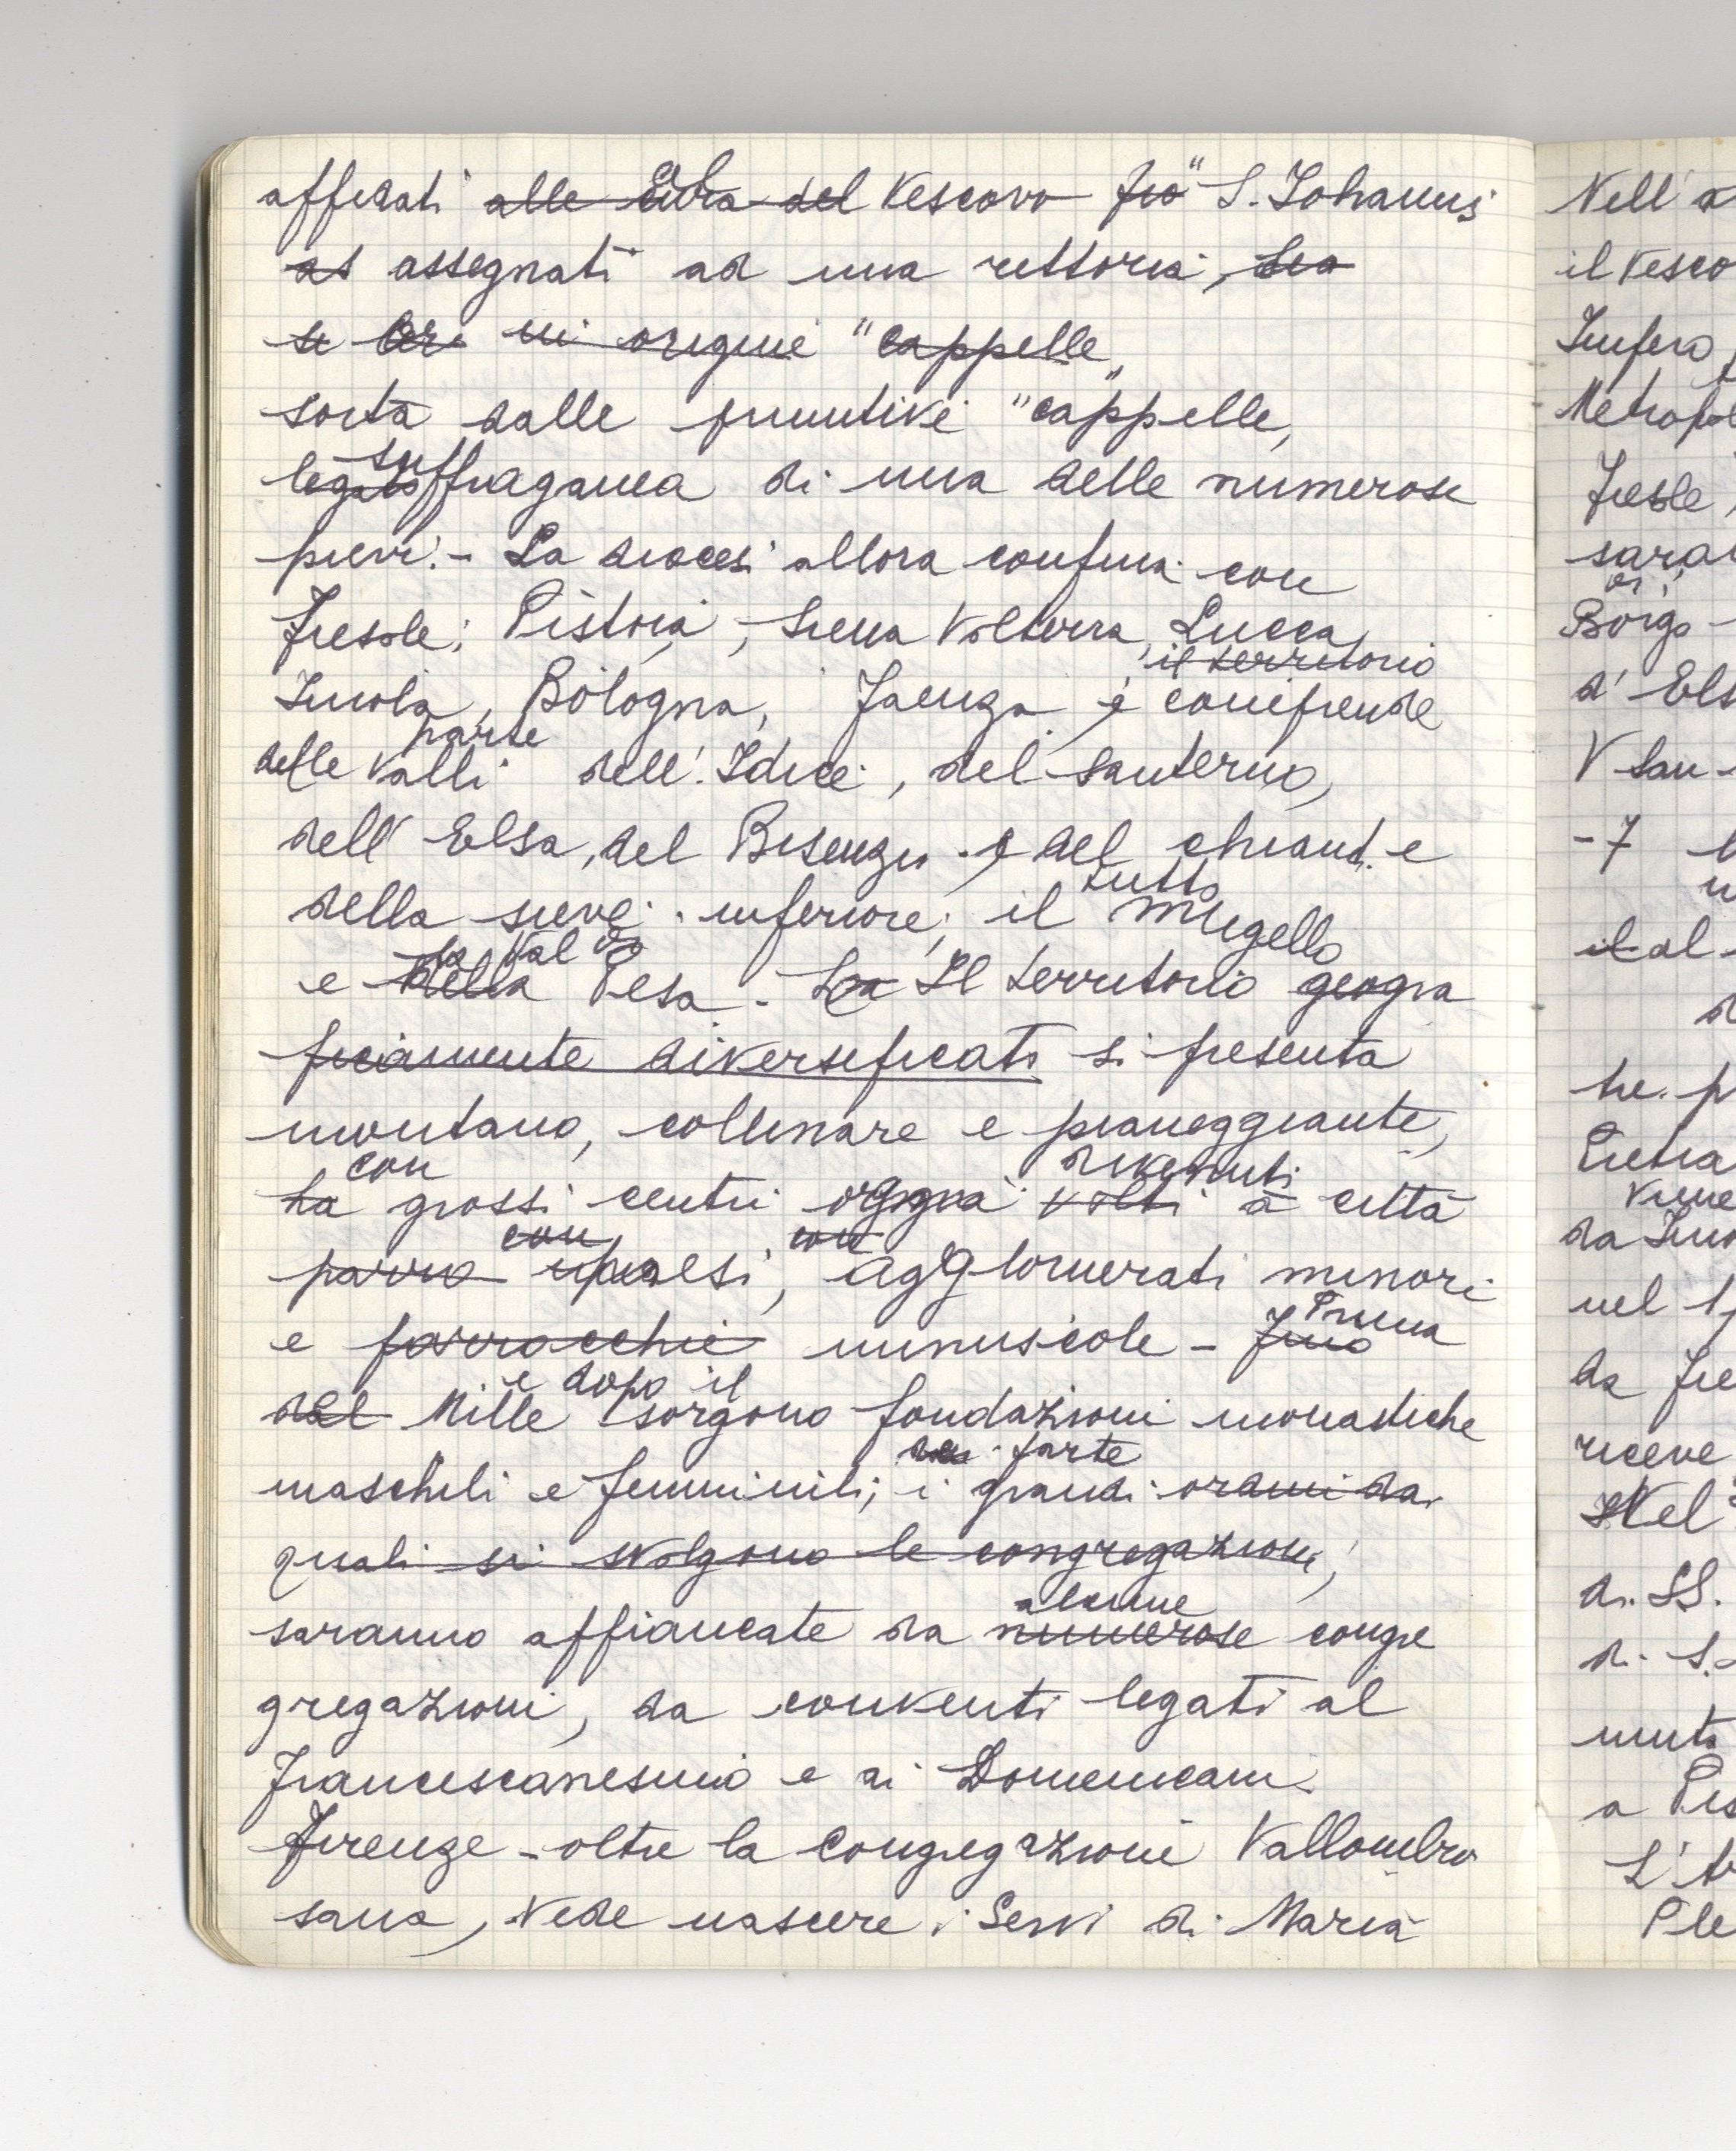 affidati alle cura del Vescovo pro "S. Johannis
as assegnati ad una rettoria,
se in origine "cappelle"
sorta dalle primitive "cappelle"
suf
legatoffraganea di una delle numerose
pievi.- La diocesi allora confina con
Fiesole, Pistoia, Siena Volterra, Lucca,
il territorio
Imola, Bologna, Faenza e comprende
parte
delle Valli dell'Idice, del Santerno,
dell'Elsa, del Bisenzio e del chianti e
tutto
della sieve inferiore, il Mugello
la Val di
e della Pesa - La Il territorio geogra
ficamente diversificato si presenta
montano, collinare e pianeggiante,
con divenuti
ha grossi centri oggigià volti a città
con con
paesi, agglomerati minori
e parrocchie minuscole - Prima
e dopo il
del Mille sorgono fondazioni monastiche
parte
maschili e femminili; i grandi ordini da
quali si svolgono le congregazioni,
alcune
saranno affiancate da numerose congre
gregazioni, da conventi legati al
Francescanesimo e ai Domenicani.
Firenze - oltre la congregazione Vallombro
sana, vede nascere i Servi di Maria
Nell'a
il Vesco
Metropol
Fiesole,
sara
Borgo -
d'Els
V San -
- 7
il al -
Pietra
da Imo
nel 1
da Fie
riceve
Nel
di SS.
di S.
a Pis
L'
Ple